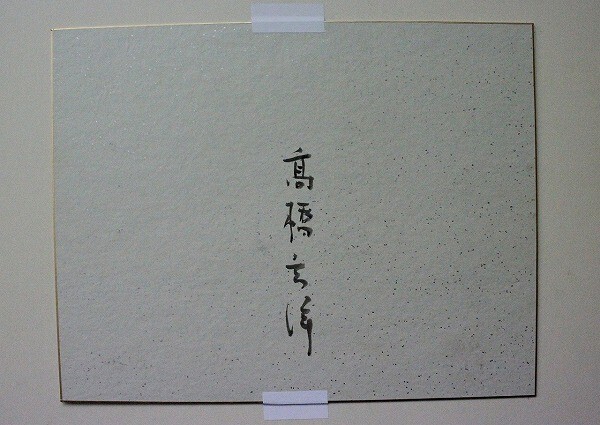 髙橋玄洋